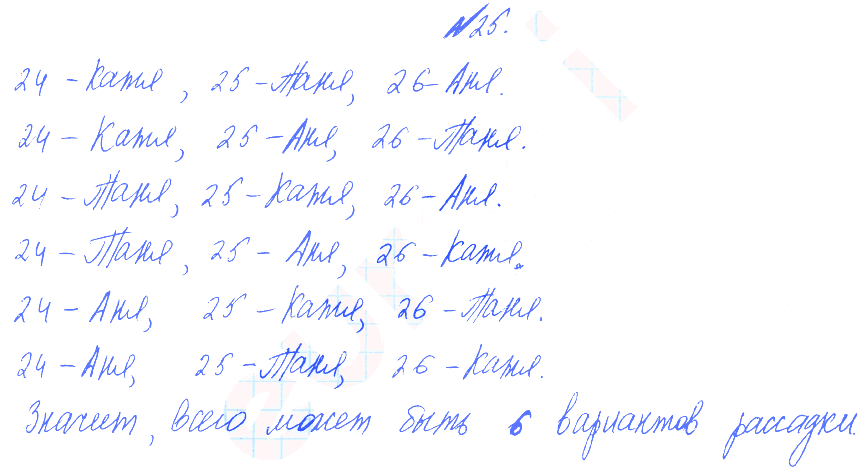 №25.
24 - Катя, 25 - Таня, 26 - Аня.
24 - Катя, 25 - Аня, 26 - Таня.
24 - Таня, 25 - Катя, 26 - Аня.
24 - Таня, 25 - Аня, 26 - Катя.
24 - Аня, 25 - Катя, 26 - Таня.
24 - Аня, 25 - Таня, 26 - Катя.
Значит, всего может быть 6 вариантов рассадки.